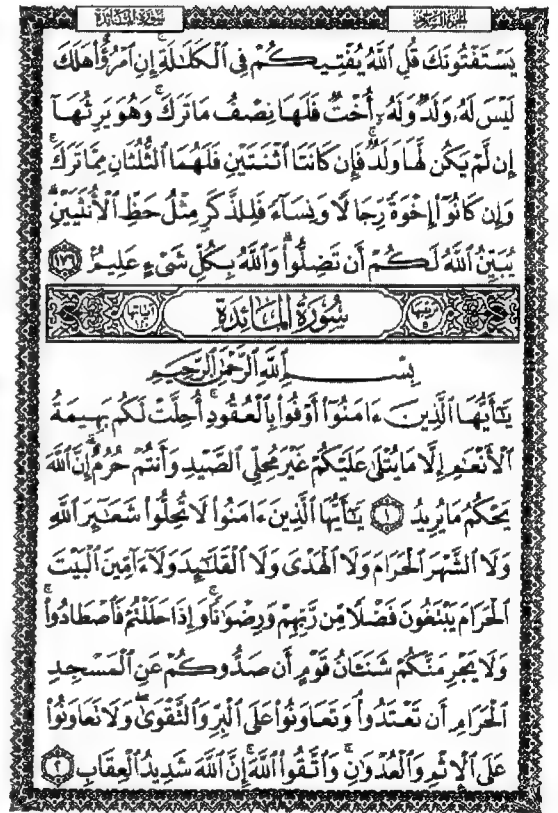 الجزء السادس سورة المائدة
يَسْتَفْتُونَكَ قُلِ ٱللَّهُ يُفْتِيكُمْ فِى ٱلْكَلَٰلَةِ ۚ إِنِ ٱمْرُؤٌا۟ هَلَكَ
لَيْسَ لَهُۥ وَلَدٌ وَلَهُۥٓ أُخْتٌ فَلَهَا نِصْفُ مَا تَرَكَ ۚ وَهُوَ يَرِثُهَآ
إِن لَّمْ يَكُن لَّهَا وَلَدٌ ۚ فَإِن كَانَتَا ٱثْنَتَيْنِ فَلَهُمَا ٱلثُّلُثَانِ مِمَّا تَرَكَ ۚ
وَإِن كَانُوٓا۟ إِخْوَةً رِّجَالًا وَنِسَآءً فَلِلذَّكَرِ مِثْلُ حَظِّ ٱلْأُنثَيَيْنِ ۗ
يُبَيِّنُ ٱللَّهُ لَكُمْ أَن تَضِلُّوا۟ ۗ وَٱللَّهُ بِكُلِّ شَىْءٍ عَلِيمٌۢ ١٧٦
ترتيبها ٥ سُورَةُ المَائِدَةِ آياتها ١٢٠
بِسْمِ ٱللَّهِ ٱلرَّحْمَٰنِ ٱلرَّحِيمِ
يَٰٓأَيُّهَا ٱلَّذِينَ ءَامَنُوٓا۟ أَوْفُوا۟ بِٱلْعُقُودِ ۚ أُحِلَّتْ لَكُم بَهِيمَةُ
ٱلْأَنْعَٰمِ إِلَّا مَا يُتْلَىٰ عَلَيْكُمْ غَيْرَ مُحِلِّى ٱلصَّيْدِ وَأَنتُمْ حُرُمٌ ۗ إِنَّ ٱللَّهَ
يَحْكُمُ مَا يُرِيدُ ١ يَٰٓأَيُّهَا ٱلَّذِينَ ءَامَنُوا۟ لَا تُحِلُّوا۟ شَعَٰٓئِرَ ٱللَّهِ
وَلَا ٱلشَّهْرَ ٱلْحَرَامَ وَلَا ٱلْهَدْىَ وَلَا ٱلْقَلَٰٓئِدَ وَلَآ ءَآمِّينَ ٱلْبَيْتَ
ٱلْحَرَامَ يَبْتَغُونَ فَضْلًا مِّن رَّبِّهِمْ وَرِضْوَٰنًا ۚ وَإِذَا حَلَلْتُمْ فَٱصْطَادُوا۟ ۚ
وَلَا يَجْرِمَنَّكُمْ شَنَـَٔانُ قَوْمٍ أَن صَدُّوكُمْ عَنِ ٱلْمَسْجِدِ
ٱلْحَرَامِ أَن تَعْتَدُوا۟ ۘ وَتَعَاوَنُوا۟ عَلَى ٱلْبِرِّ وَٱلتَّقْوَىٰ ۖ وَلَا تَعَاوَنُوا۟
عَلَى ٱلْإِثْمِ وَٱلْعُدْوَٰنِ ۚ وَٱتَّقُوا۟ ٱللَّهَ ۖ إِنَّ ٱللَّهَ شَدِيدُ ٱلْعِقَابِ ٢